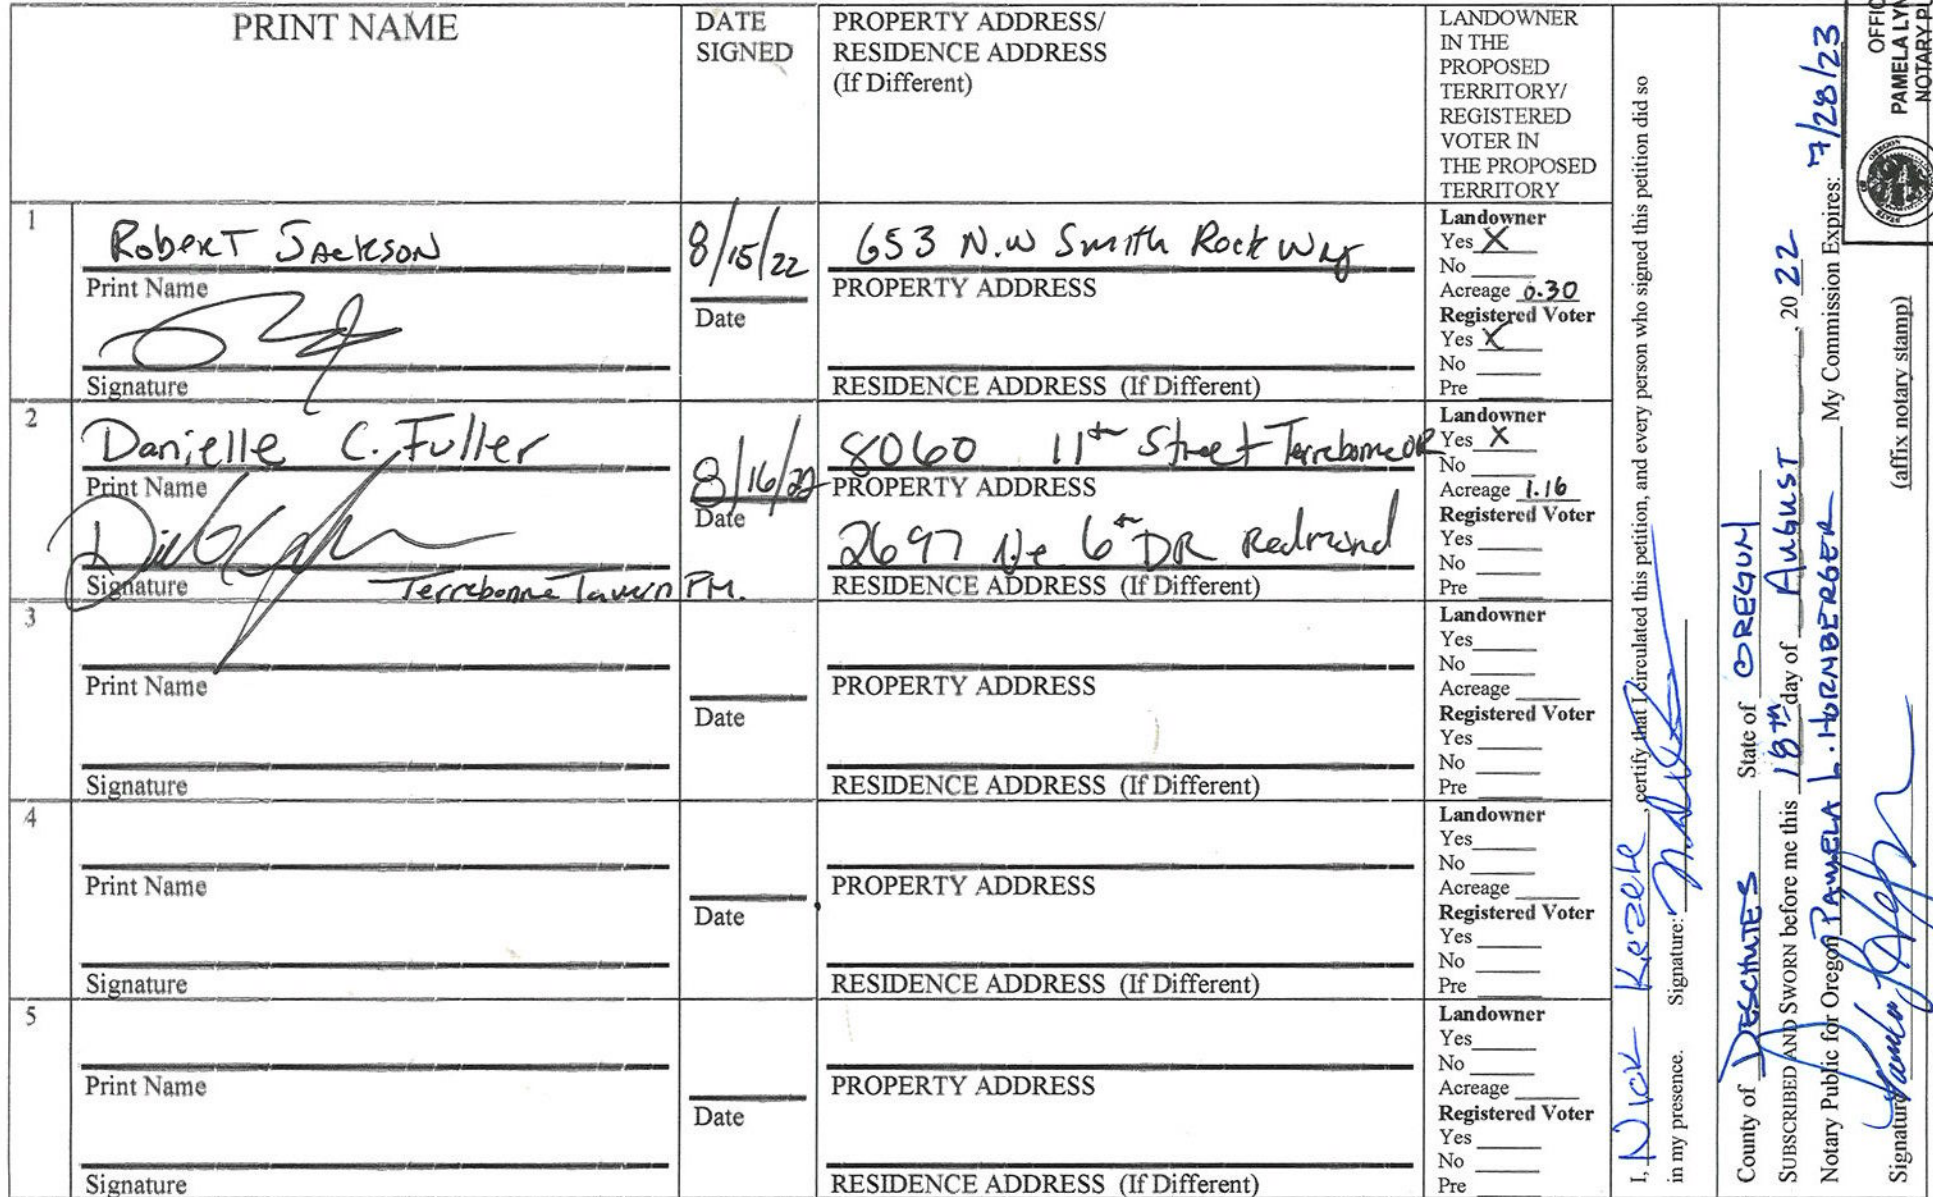 PRINT NAME
DATE
SIGNED
PROPERTY ADDRESS/
RESIDENCE ADDRESS
(If Different)
LANDOWNER
IN THE
PROPOSED
TERRITORY/
REGISTERED
VOTER IN
THE PROPOSED
TERRITORY
1
Robert Jackson
Print Name
Signature
8/15/22
Date
653 N.W Smith Rock Way
PROPERTY ADDRESS
RESIDENCE ADDRESS (If Different)
Landowner
Yes X
No
Acreage 0.30
Registered Voter
Yes X
No
Pre
2
Danielle C. Fuller
Print Name
Signature
Terrebonne Tavern PM.
8/16/22
Date
8060 11th Street Terrebonne OR
PROPERTY ADDRESS
2697 Ne 6th DR Redmond
RESIDENCE ADDRESS (If Different)
Landowner
Yes X
No
Acreage 1.16
Registered Voter
Yes
No
Pre
3
Print Name
Signature
Date
PROPERTY ADDRESS
RESIDENCE ADDRESS (If Different)
Landowner
Yes
No
Acreage
Registered Voter
Yes
No
Pre
4
Print Name
Signature
Date
PROPERTY ADDRESS
RESIDENCE ADDRESS (If Different)
Landowner
Yes
No
Acreage
Registered Voter
Yes
No
Pre
5
Print Name
Signature
Date
PROPERTY ADDRESS
RESIDENCE ADDRESS (If Different)
Landowner
Yes
No
Acreage
Registered Voter
Yes
No
Pre
I, Nick Kezele, certify that I circulated this petition, and every person who signed this petition did so
in my presence. Signature:
County of DESCHUTES State of OREGON
SUBSCRIBED AND SWORN before me this 18th day of AUGUST, 2022
Notary Public for Oregon PAMELA L. HORNBERGER My Commission Expires: 7/28/23
Signature (affix notary stamp)
OFFIC
PAMELA LYN
NOTARY PU
STATE OF OREGON